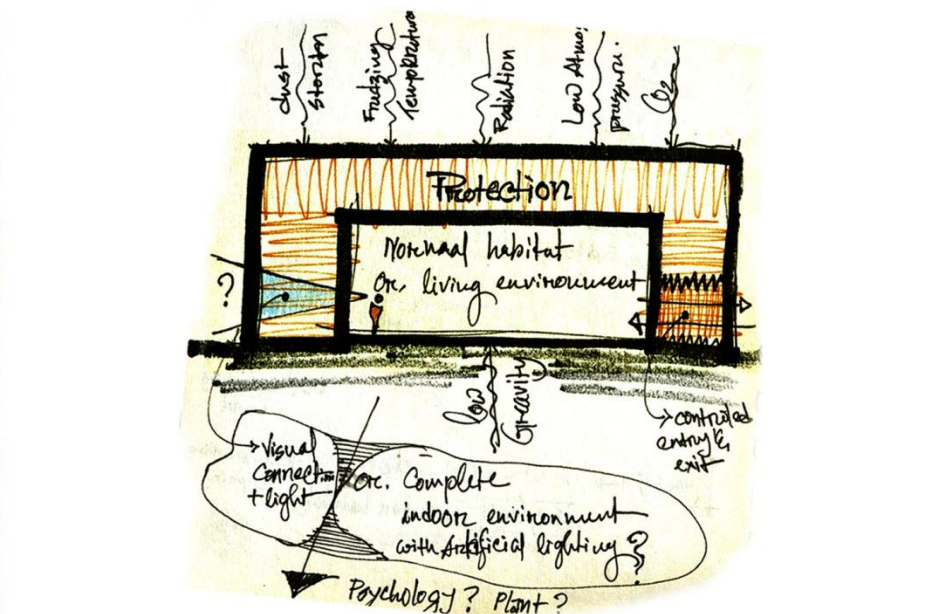 dust
storm
Freezing
Temperature
Radiation
Low Atmo.
pressure.
CO2
Protection
Normaal habitat
Or. living environment
?
low
Greavity
controled
entry &
exit
Visual
Connection
+ light
or. Complete
indoor environment
with Artificial lighting?
Psychology? Plant?